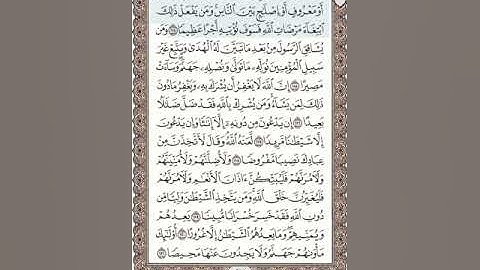 أَوْ مَعْرُوفٍ أَوْ إِصْلَٰحٍۭ بَيْنَ ٱلنَّاسِ ۚ وَمَن يَفْعَلْ ذَٰلِكَ
ٱبْتِغَآءَ مَرْضَاتِ ٱللَّهِ فَسَوْفَ نُؤْتِيهِ أَجْرًا عَظِيمًا ١١٤ وَمَن
يُشَاقِقِ ٱلرَّسُولَ مِنۢ بَعْدِ مَا تَبَيَّنَ لَهُ ٱلْهُدَىٰ وَيَتَّبِعْ غَيْرَ
سَبِيلِ ٱلْمُؤْمِنِينَ نُوَلِّهِۦ مَا تَوَلَّىٰ وَنُصْلِهِۦ جَهَنَّمَ ۖ وَسَآءَتْ
مَصِيرًا ١١٥ إِنَّ ٱللَّهَ لَا يَغْفِرُ أَن يُشْرَكَ بِهِۦ وَيَغْفِرُ مَا دُونَ
ذَٰلِكَ لِمَن يَشَآءُ ۚ وَمَن يُشْرِكْ بِٱللَّهِ فَقَدْ ضَلَّ ضَلَٰلًۢا
بَعِيدًا ١١٦ إِن يَدْعُونَ مِن دُونِهِۦٓ إِلَّآ إِنَٰثًا وَإِن يَدْعُونَ
إِلَّا شَيْطَٰنًا مَّرِيدًا ١١٧ لَّعَنَهُ ٱللَّهُ ۘ وَقَالَ لَأَتَّخِذَنَّ مِنْ
عِبَادِكَ نَصِيبًا مَّفْرُوضًا ١١٨ وَلَأُضِلَّنَّهُمْ وَلَأُمَنِّيَنَّهُمْ
وَلَءَامُرَنَّهُمْ فَلَيُبَتِّكُنَّ ءَاذَانَ ٱلْأَنْعَٰمِ وَلَءَامُرَنَّهُمْ
فَلَيُغَيِّرُنَّ خَلْقَ ٱللَّهِ ۚ وَمَن يَتَّخِذِ ٱلشَّيْطَٰنَ وَلِيًّا مِّن
دُونِ ٱللَّهِ فَقَدْ خَسِرَ خُسْرَانًا مُّبِينًا ١١٩ يَعِدُهُمْ
وَيُمَنِّيهِمْ ۖ وَمَا يَعِدُهُمُ ٱلشَّيْطَٰنُ إِلَّا غُرُورًا ١٢٠ أُو۟لَٰٓئِكَ
مَأْوَىٰهُمْ جَهَنَّمُ وَلَا يَجِدُونَ عَنْهَا مَحِيصًا ١٢١